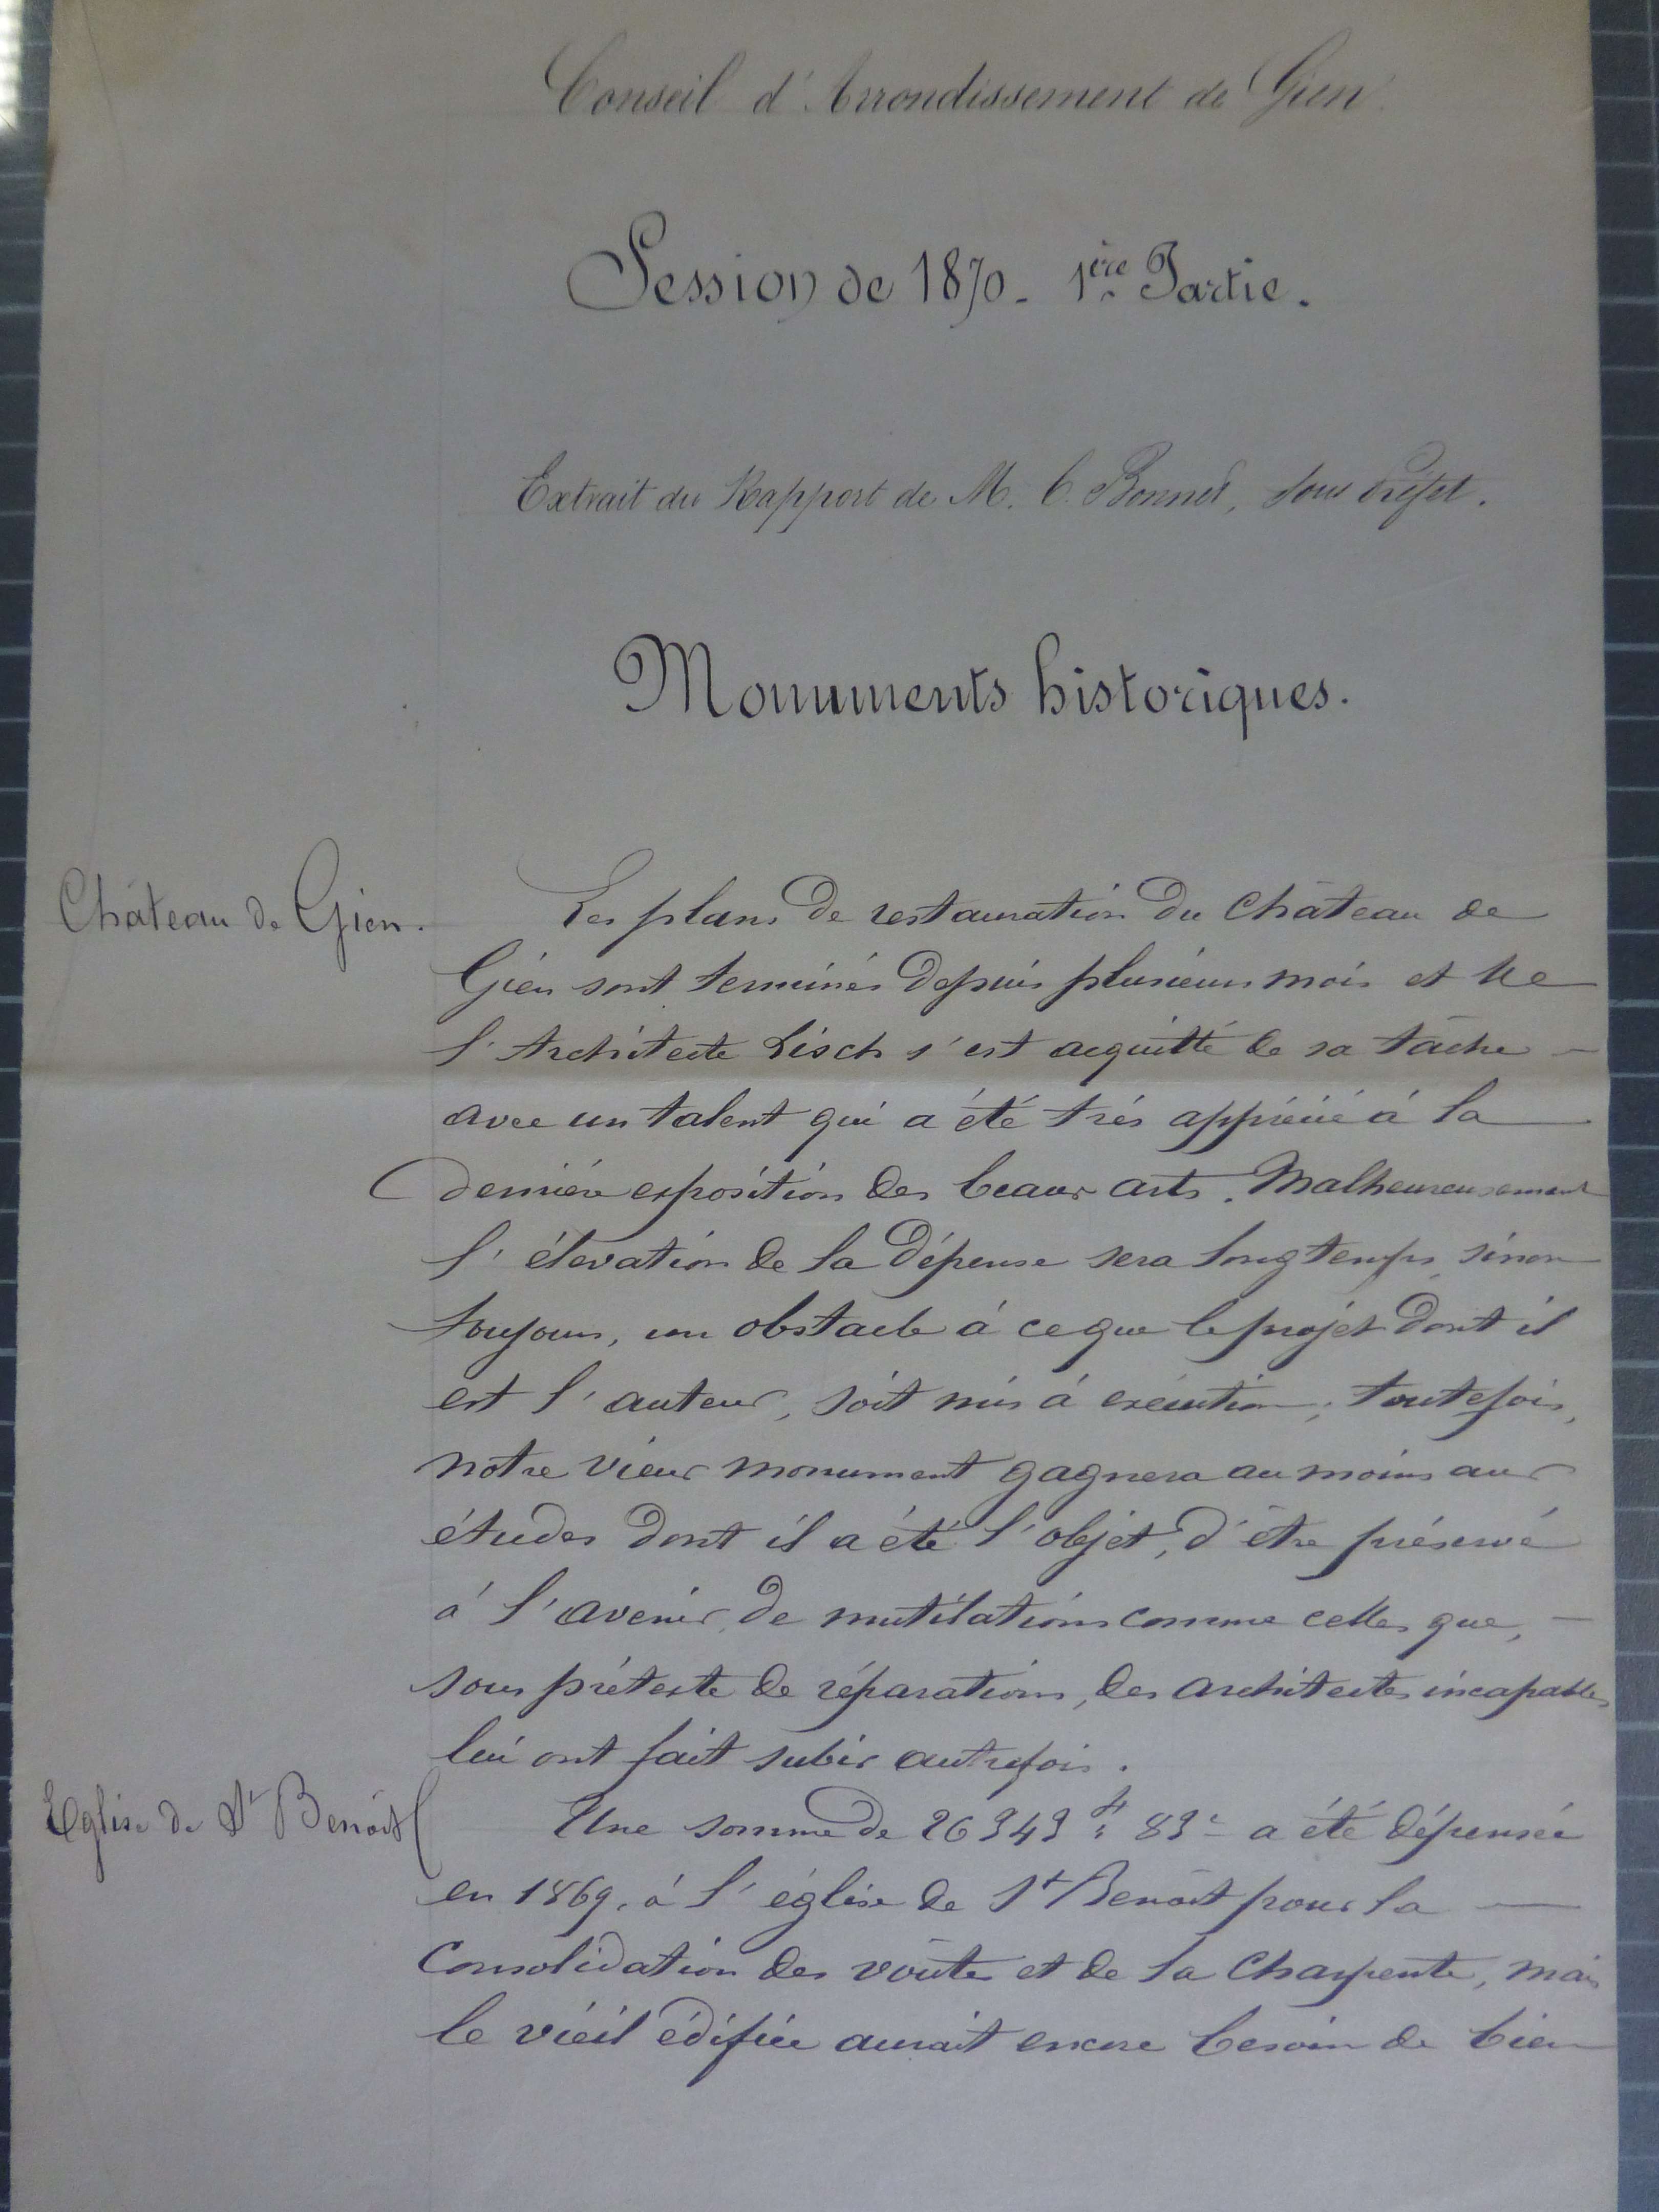 Conseil d'Arrondissement de Gien
Session de 1870 - 1ère Partie.
Extrait du Rapport de M. C. Bonnet, Sous Préfet.
Monuments historiques.
Château de Gien.
Les plans de restauration du Château de
Gien sont terminés depuis plusieurs mois et
l'Architecte Lisch s'est acquitté de sa tâche
avec un talent qui a été très apprécié à la
dernière exposition des beaux arts. Malheureusement
l'élévation de la dépense sera longtemps, sinon
toujours, un obstacle à ce que le projet dont il
est l'auteur, soit mis à exécution; toutefois,
notre vieux monument gagnera au moins aux
études dont il a été l'objet, d'être préservé
à l'avenir, de mutilations comme celles que,
sous prétexte de réparations, des architectes incapables
lui ont fait subir autrefois.
Eglise de St Benoît
Une somme de 26343 f. 83c a été dépensée
en 1869, à l'église de St Benoît pour la
consolidation des voûtes et de la Charpente, mais
le vieil édifice aurait encore besoin de bien